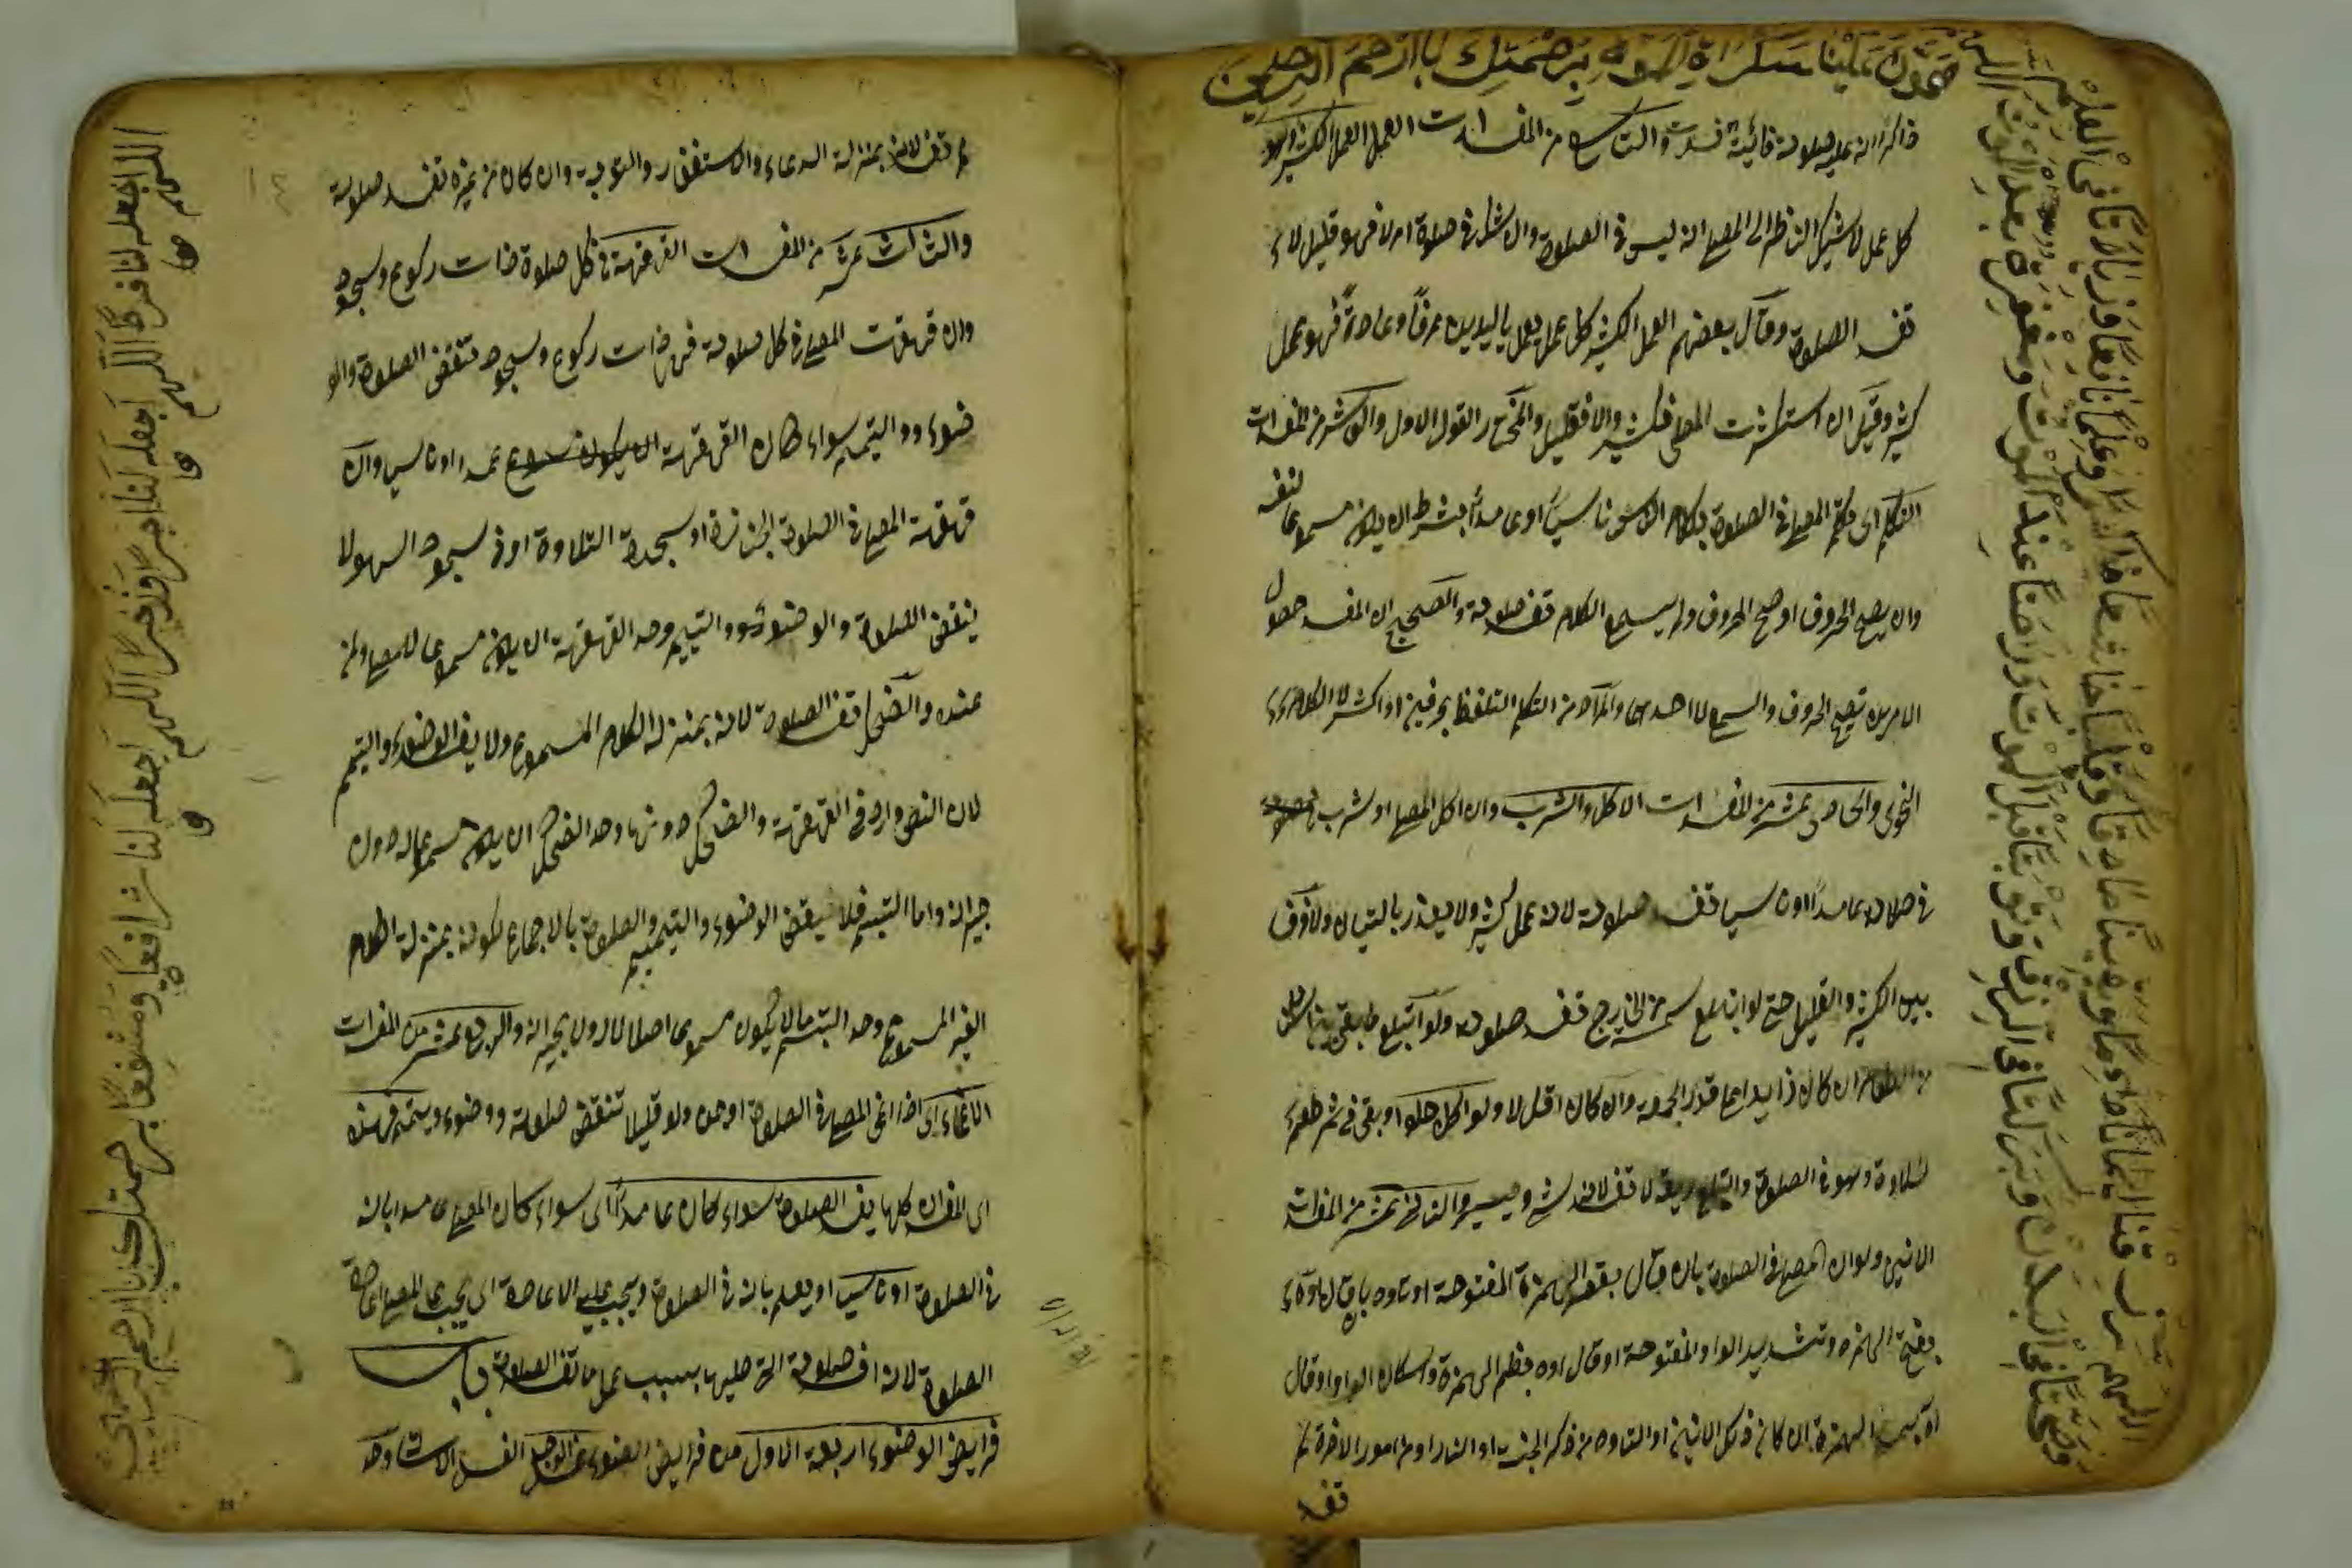 هون علينا سكراة الموت برحمتك يا ارحم الراحمين
ذاكرا ان عليه صلوة فائتة فسدت والتاسع من المفسدات العمل العمل الكثير
كل عمل لا يشك الناظر الى المصلى انه ليس فى الصلوة وان شك فى صلوة ام لا فهو قليل لا
تفسد الصلوة وقال بعضهم العمل الكثير كل عمل يعمل باليدين عرفا وعادة فهو عمل
كثير وقيل ان استكثرت المصلى فكثير والا فقليل والمختار القول الاول والعاشر من المفسدات
التكلم اى تكلم المصلى فى الصلوة بكلام الناس ناسيا او عامدا بشرط ان يكون مسموعا لنفسه
وان يصحح الحروف او صحح الحروف ولم يسمع الكلام تفسد صلوته والصحيح ان المفسد حصول
الامرين تصحيح الحروف والسمع لا احدهما والمراد من التكلم التلفظ بحرفين او اكثر لا الكلام
النحوى والحادى عشر من المفسدات الاكل والشرب وان اكل المصلى او شرب
فى صلاته عامدا او ناسيا تفسد صلوته لانه عمل كثير ولا يعذر بالنسيان ولا فرق
بين الكثير والقليل حتى لو ابتلع سمسمة من الخارج تفسد صلوته ولو ابتلع ما بقى بين
من الطعام ان كان زايدا على قدر الحمصة وان كان اقل لا ولو اكل حلوا وبقى فى فم طعم
لحلاوة وهو فى الصلوة وابتلع ريقه لا تفسد لانه شىء يسير والثانى عشر من المفسدات
الانين ولو ان المصلى فى الصلوة بان قال بقصر الهمزة المفتوحة او تاوه بان قال اوه
بفتح الهمزه وتشديد الواو المفتوحة او قال اوه بضم الهمزة واسكان الواو او قال
اه الهمزة ان كان ذلك الانين او التاوه من ذكر الجنة او النار او من امور الاخرة لم
تفسد
اللهم شرف قنا ايمانا دوما ويقينا صادقا وقلبا خاشعا ذاكرا وعلما نافعا وزيادتا فى العلم
وصحتا فى البدن وبركتا فى الرزق وتوبتا قبل الموت وراحتا عند الموت ومغفرة بعد الموت اللهم
لم تفسد لانه بمنزلة الدعاء والاستغفار والتوبة وان كان من غيره تفسد صلوته
والثالث عشر من المفسدات القهقهة فى كل صلوة ذات ركوع وسجود
وان قهقهت المصلى فى كل صلوة فى ذات ركوع وسجود تنقض الصلوة والو
ضوء والتيمم سواء كان القهقهة عمدا او ناسى وان
قهقهة المصلى فى الصلوة الجنازة او سجدة التلاوة او فى سجود السهو لا
ينقض الصلوة والوضوء والتيمم وحد القهقهة ان يكون مسموعا للمصلى ولمن
عنده والضحك تفسد الصلوة لانه بمنزلة الكلام المسموع ولا يفسد الوضوء والتيمم
لان النص وارد فى القهقهة والضحك دونها وحد الضحك ان يكون مسموعا له دون
جيرانه واما التبسم فلا ينقض الوضوء والتيمم والصلوة بالاجماع لكونه بمنزلة الكلام
الغير المسموع وحد التبسم ما لا يكون مسموعا اصلا لا له ولا بجيرانه والرابع عشر من المفسدات
الاغماء اى اذا اغمى المصلى فى الصلوة او جن ولو قليلا تنقض صلوته ووضوء وتيممه فهذه
اى المفسدات كلها يفسد الصلوة سواء كان عامدا اى سواء كان المصلى عامدا بانه
فى الصلوة او ناسيا او يعلم بانه فى الصلوة ويجب عليه الاعادة اى يجب على المصلى اعادة
الصلوة لانه افسد صلوته التى صليها بسبب عمل ما تفسد الصلوة باب
فرايض الوضوء اربعة الاول من فرايض الوضوء غسل الوجه
اللهم اجعله لنا فرطا اللهم اجعله لنا اجرا وذخرا اللهم اجعله لنا شافعا ومشفعا برحمتك يا ارحم الراحمين